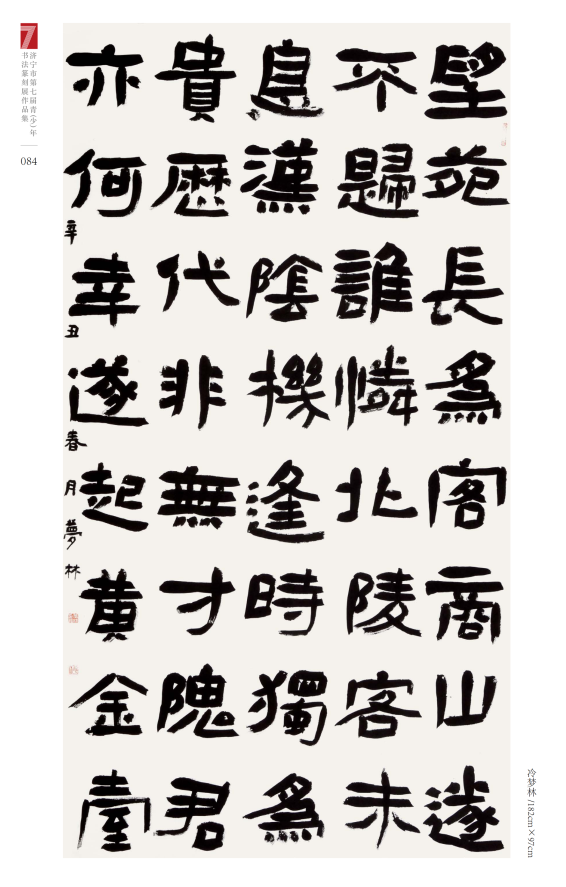 望苑長爲客商山遂
不歸誰憐北陵客未
息漢陰機逢時獨爲
貴曆代非無才隗君
亦何幸遂起黃金臺
辛丑春月夢林
7
济宁市第七届青(少)年
书法篆刻展作品集
084
冷梦林 /182cm×97cm